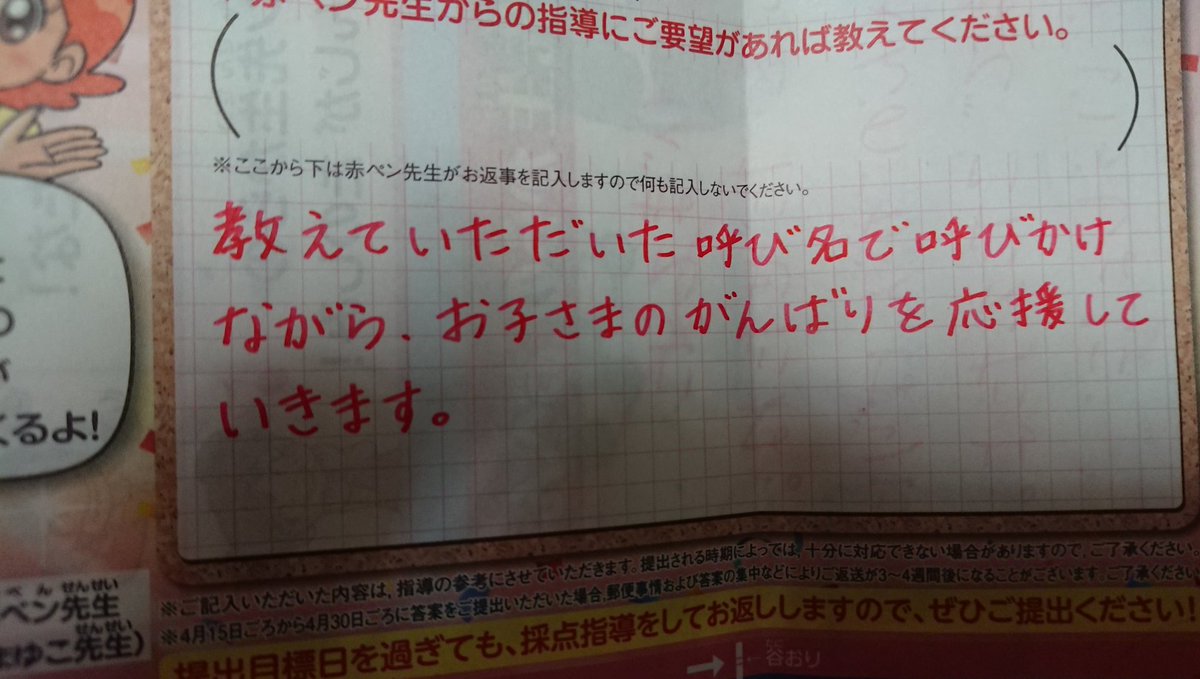 赤ペン先生からの指導にご要望があれば教えてください。
※ここから下は赤ペン先生がお返事を記入しますので何も記入しないでください。
教えていただいた呼び名で呼びかけ
ながら、お子さまのがんばりを応援して
いきます。
くるよ!
※ご記入いただいた内容は、指導の参考にさせていただきます。提出される時期によっては、十分に対応できない場合がありますので、ご了承ください
※4月15日ごろから4月30日ごろに答案をご提出いただいた場合、郵便事情および答案の集中などによりご返送が3〜4週間後になることがございます。ご了承ください
提出目標日を過ぎても、採点指導をしてお返ししますので、ぜひご提出ください!
ペン先生
ゆこ先生)
谷おり